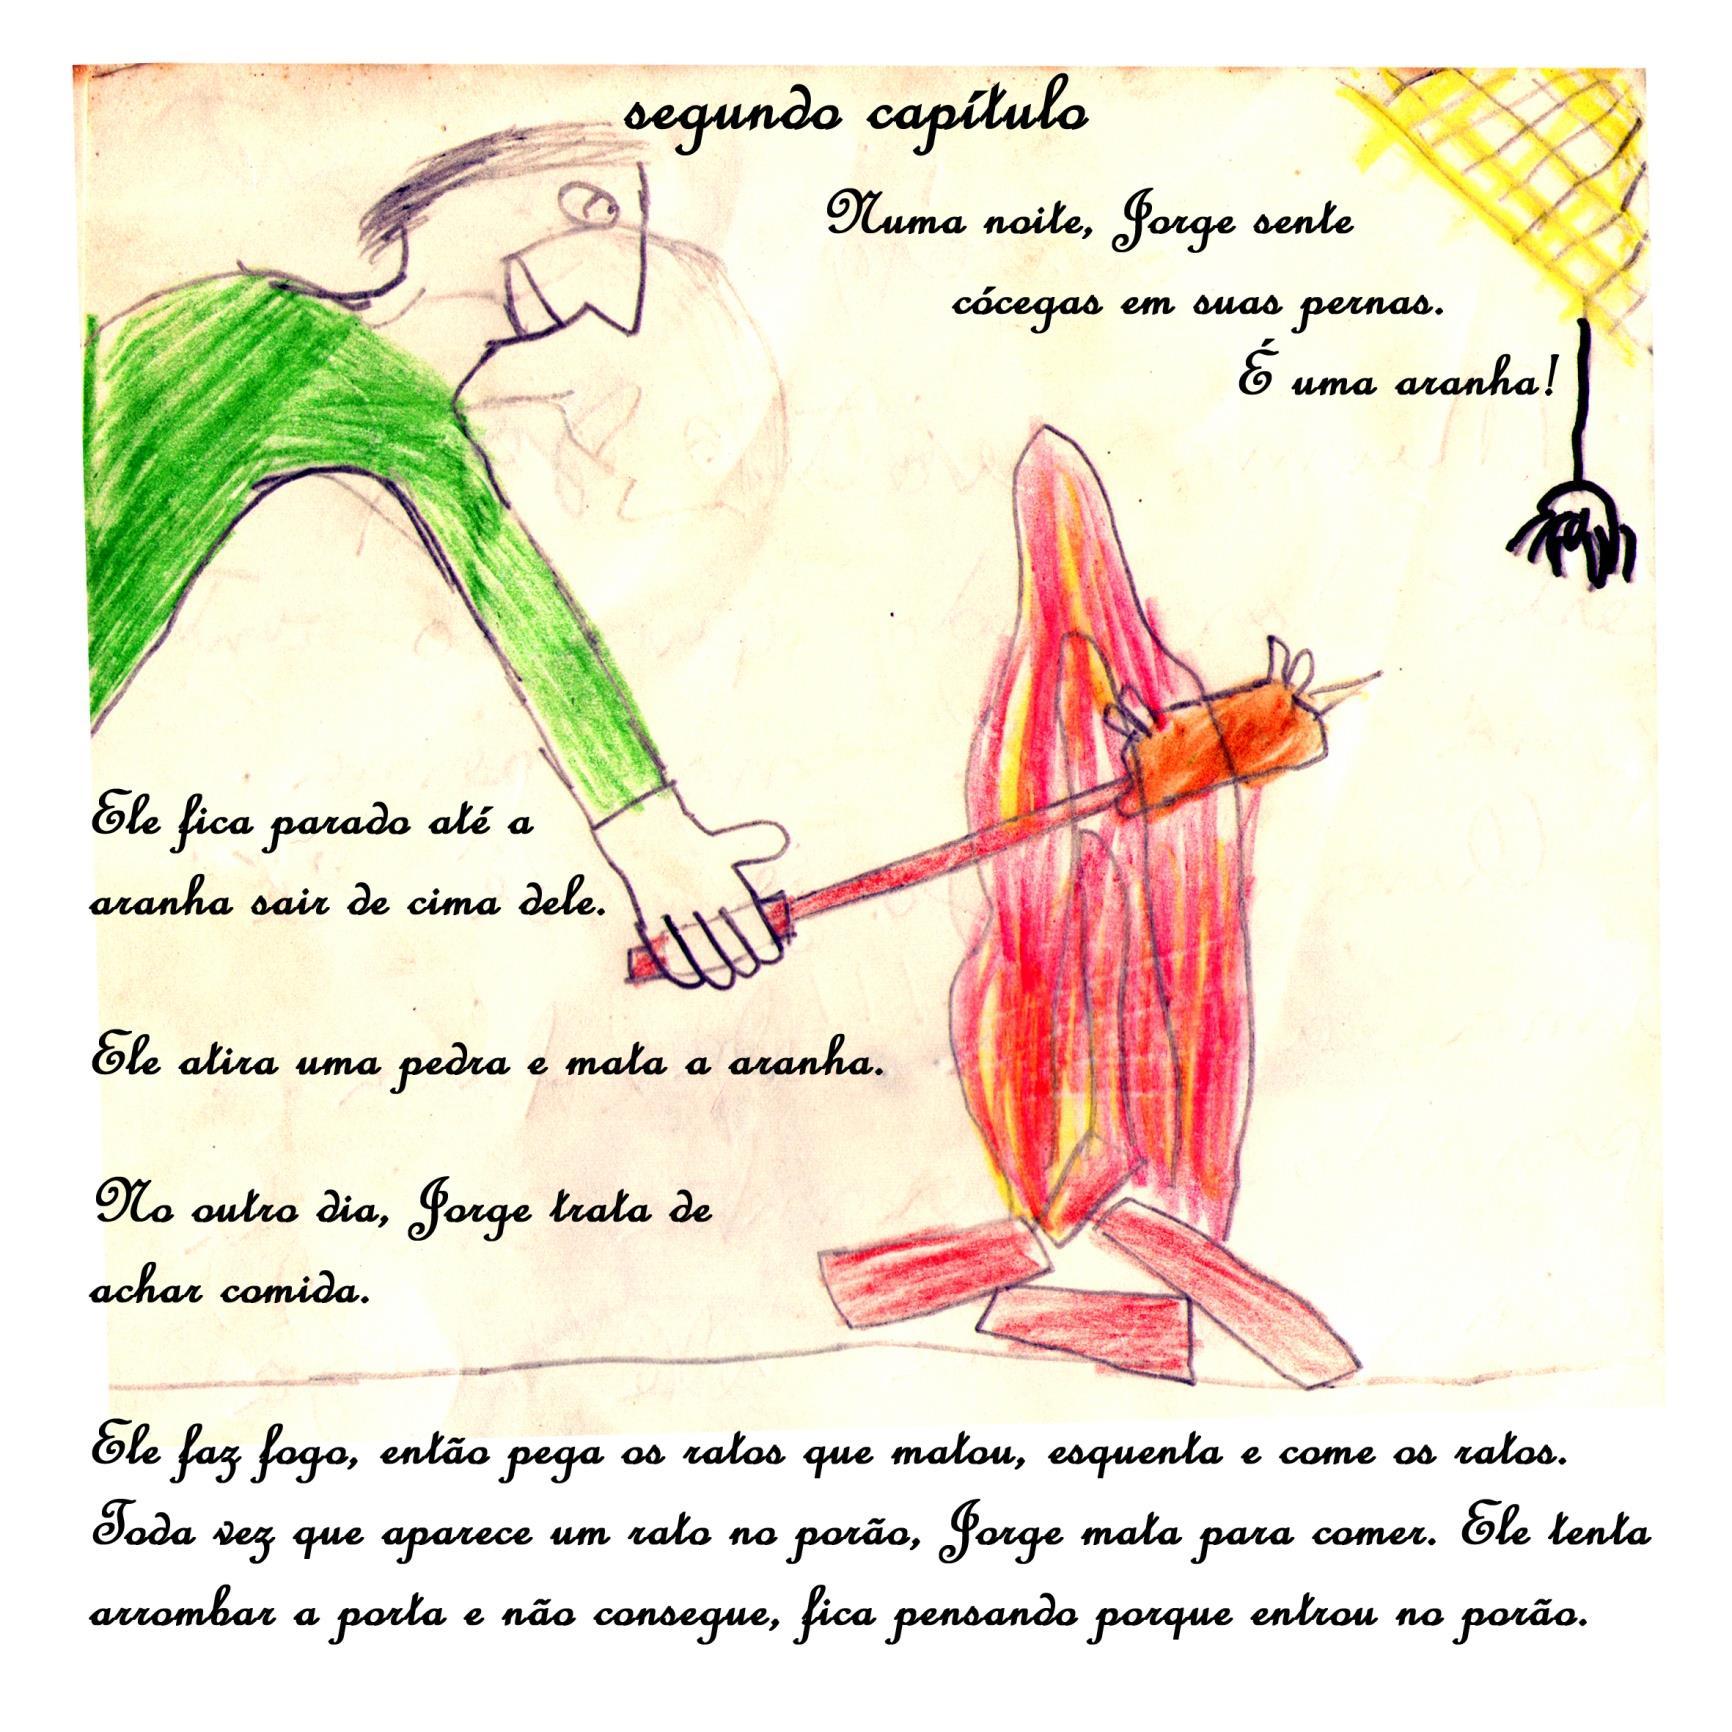 segundo capítulo
Numa noite, Jorge sente
cócegas em suas pernas.
É uma aranha!
Ele fica parado até a
aranha sair de cima dele.
Ele atira uma pedra e mata a aranha.
No outro dia, Jorge trata de
achar comida.
Ele faz fogo, então pega os ratos que matou, esquenta e come os ratos.
Toda vez que aparece um rato no porão, Jorge mata para comer. Ele tenta
arrombar a porta e não consegue, fica pensando porque entrou no porão.